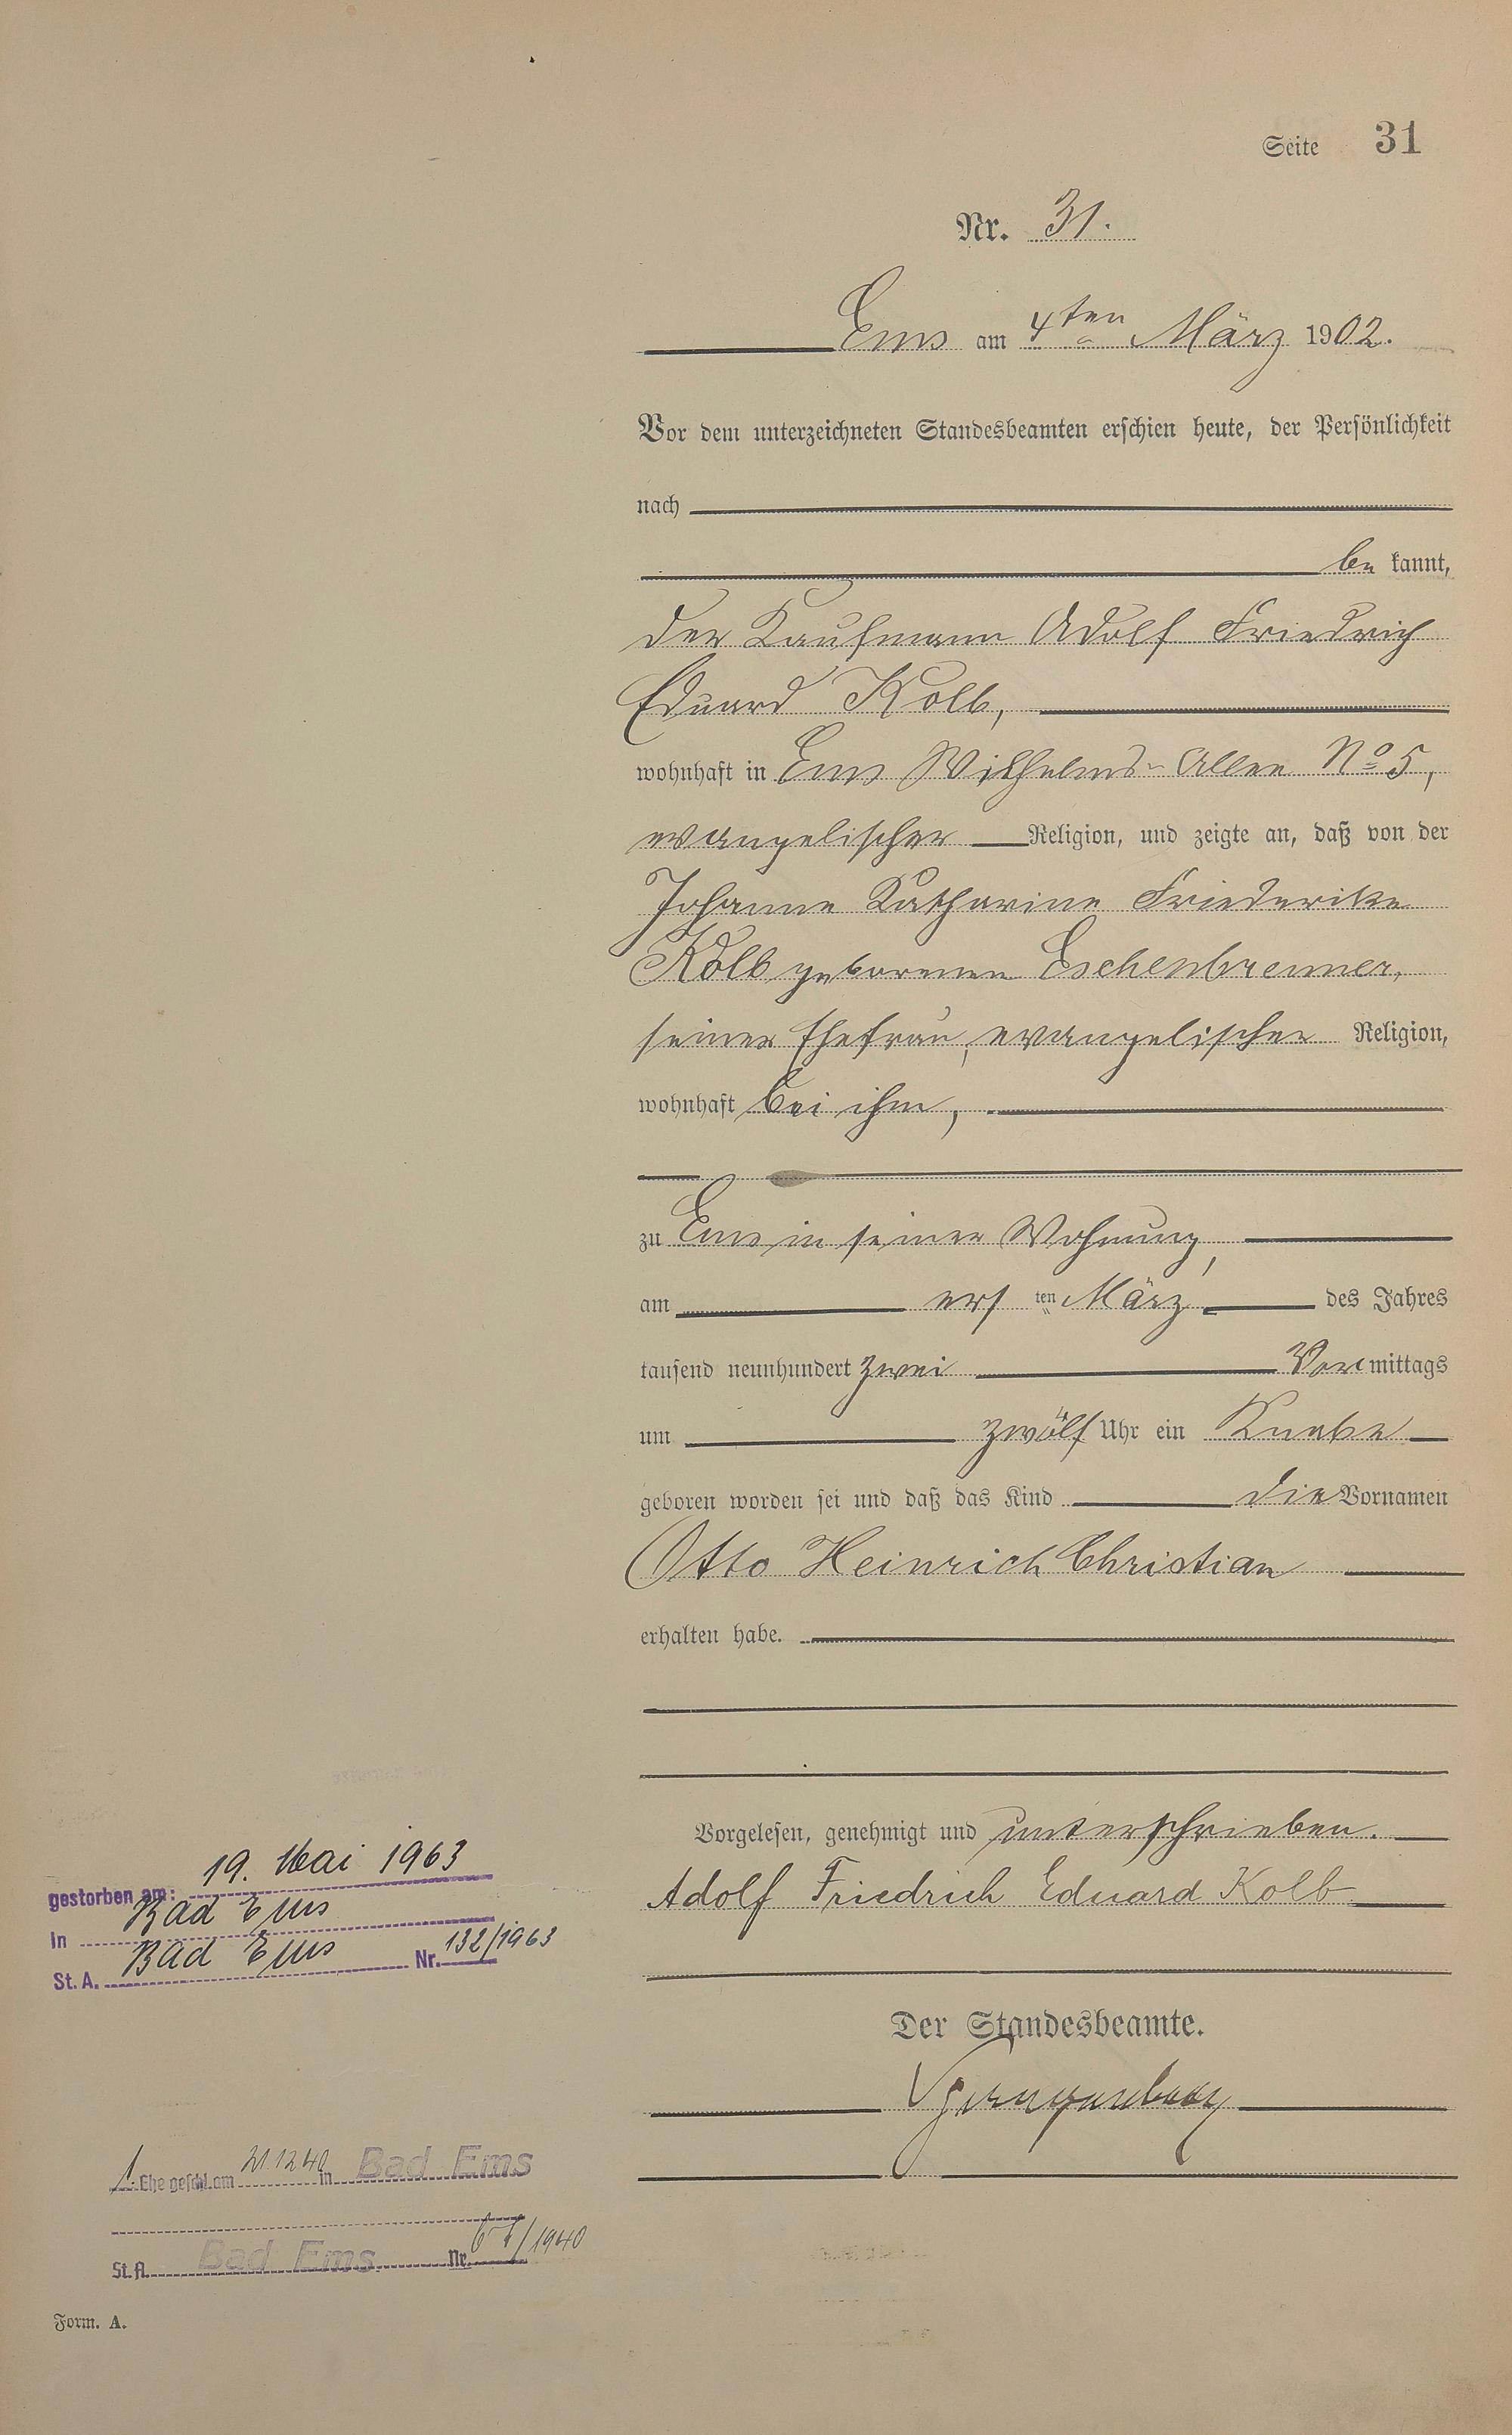 Seite 31
Nr. 31.
Ems am 4ten März 1902.
Vor dem unterzeichneten Standesbeamten erschien heute, der Persönlichkeit
nach
be kannt,
der Kaufmann Adolf Friedrich
Eduard Kolb,
wohnhaft in Ems Wilhelms-Allee No 5,
evangelischer Religion, und zeigte an, daß von der
Johanne Katharine Friederike
Kolb geborenen Eschenbrenner,
seiner Ehefrau, evangelischer Religion,
wohnhaft bei ihm,
zu Ems in seiner Wohnung,
am ersten März des Jahres
tausend neunhundert zwei Vormittags
um zwölf Uhr ein Knabe
geboren worden sei und daß das Kind die Vornamen
Otto Heinrich Christian
erhalten habe.
Vorgelesen, genehmigt und unterschrieben.
Adolf Friedrich Eduard Kolb
Der Standesbeamte.
gestorben am: 19. Mai 1963
In Bad Ems
St. A. Bad Ems Nr. 132/1963
1. Ehe geschl. am 21.12.40 in Bad Ems
St. A. Bad Ems Nr. /1940
Form. A.